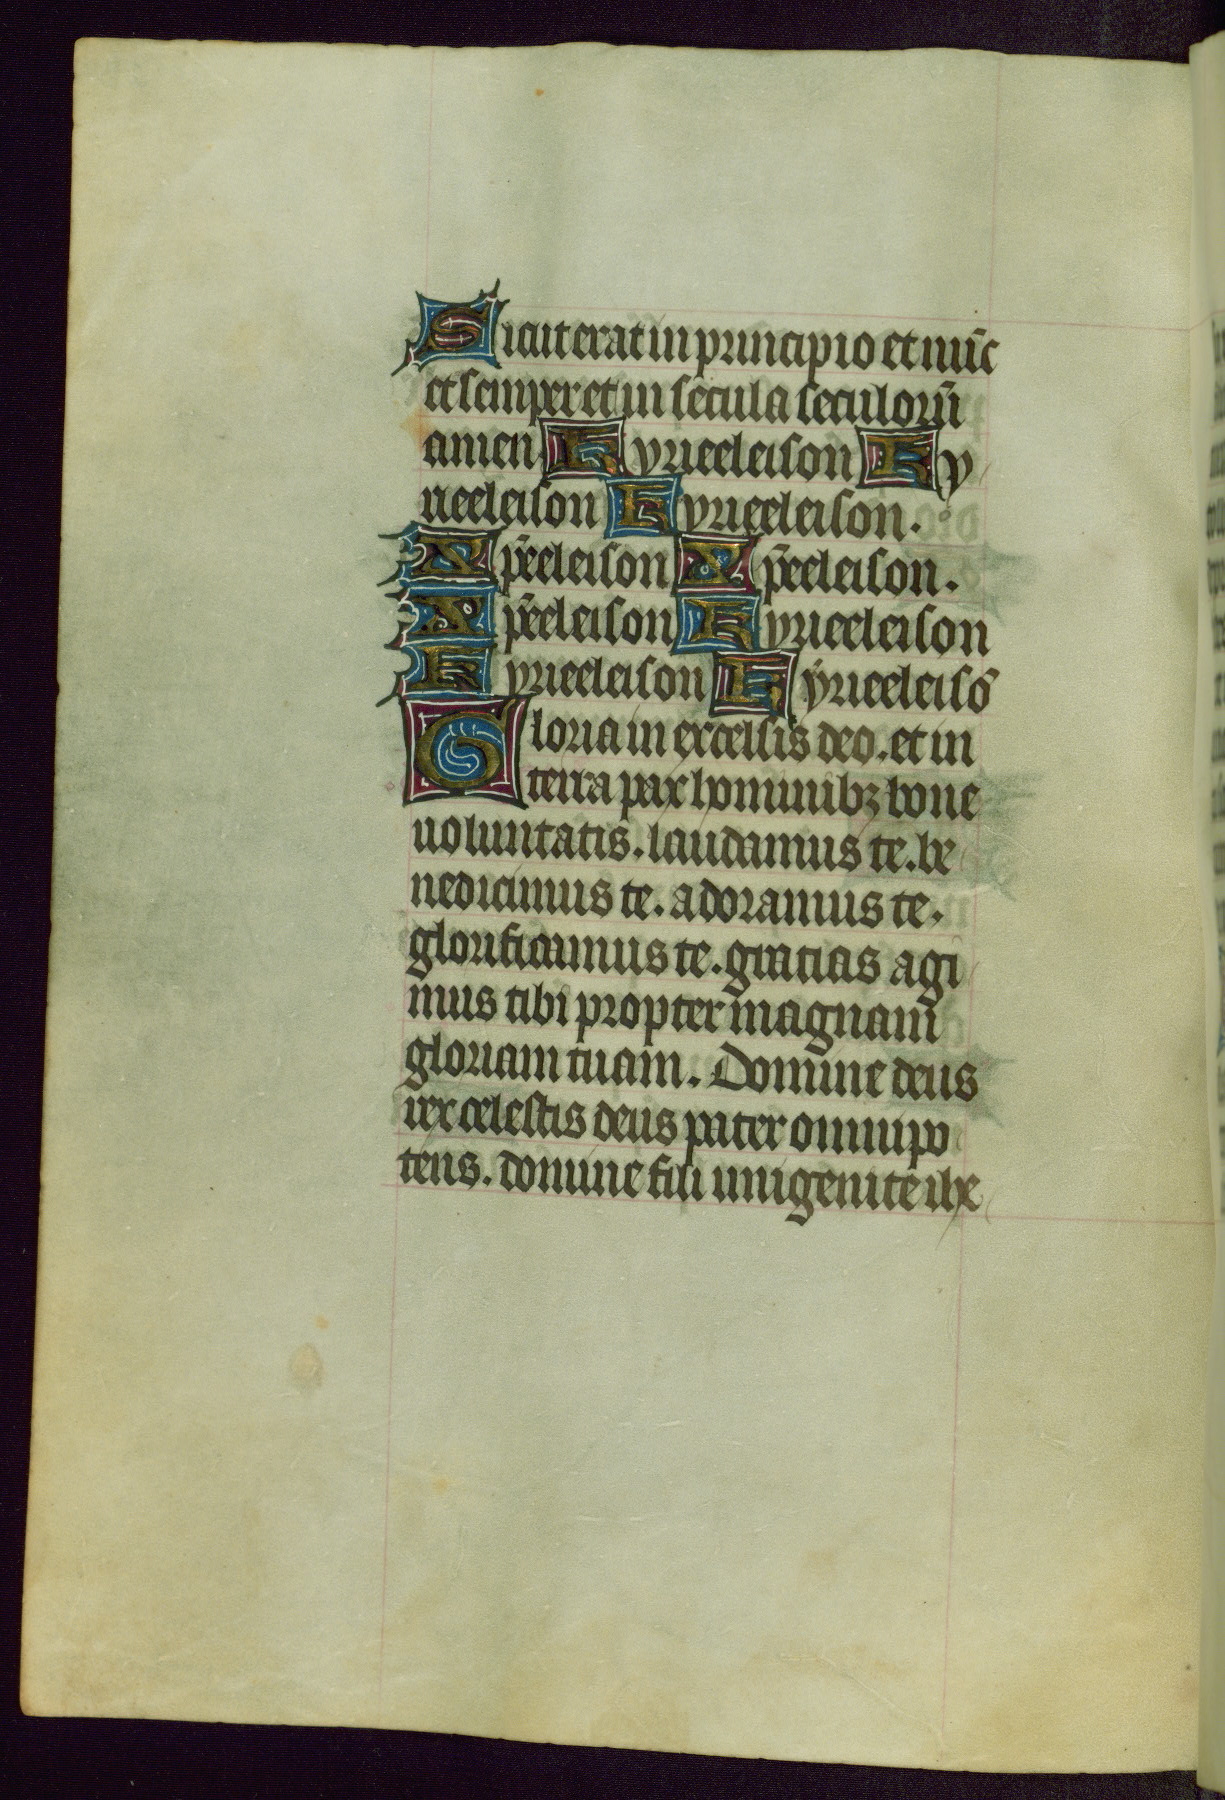 Sicut erat in principio et nūc
et semper et in secula seculorū
amen Kyrieeleison Ky
rieeleison Kyrieeleison.
Xp̄eeleison Xp̄eeleison.
Xp̄eeleison Kyrieeleison
Kyrieeleison Kyrieeleisō
Gloria in excelsis deo. et in
terra pax hominibꝫ bone
uoluntatis. laudamus te. be
nedicimus te. adoramus te.
glorificamus te. gratias agi
mus tibi propter magnam
gloriam tuam. Domine deus
rex celestis deus pater omnipo
tens. domine fili unigenite ihe